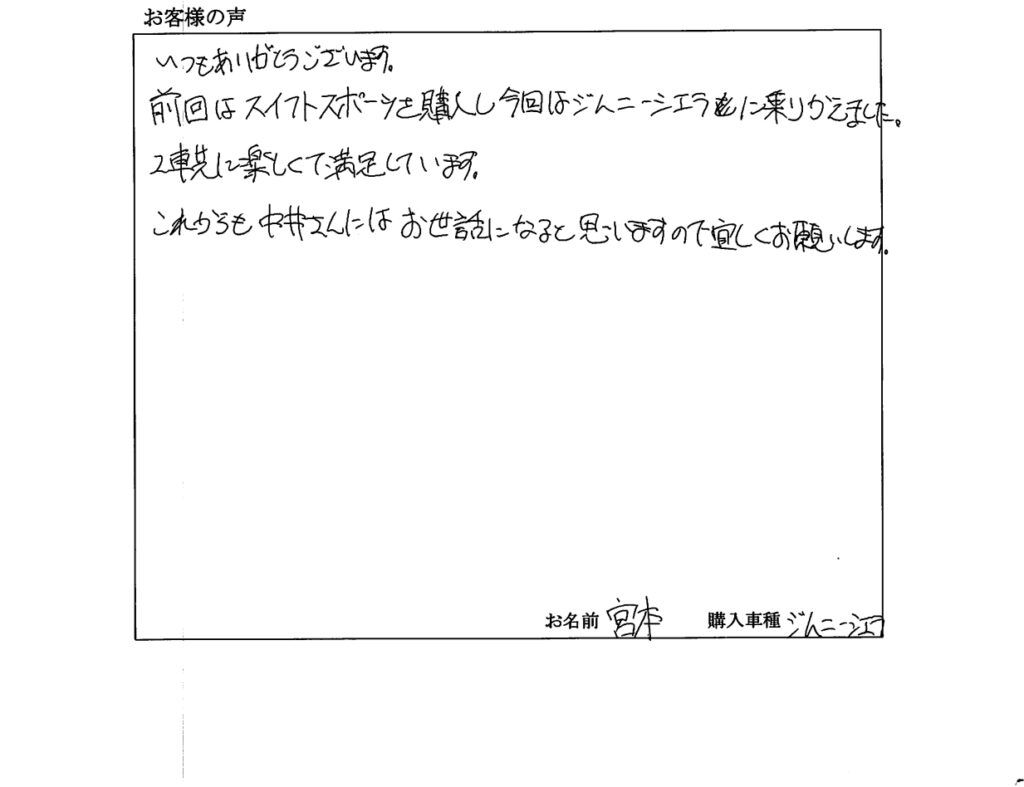 お客様の声
いつもありがとうございます。
前回はスイフトスポーツを購入し今回はジムニーシエラに乗りかえました。
2車共に楽しくて満足しています。
これからも中井さんにはお世話になると思いますので宜しくお願いします。
お名前 宮本 購入車種 ジムニーシエラ